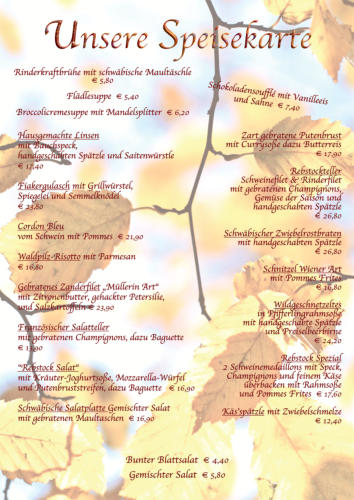 Unsere Speisekarte
Rinderkraftbrühe mit schwäbische Maultäschle
€ 5,80
Flädlesuppe € 5,40
Broccolicremesuppe mit Mandelsplitter € 6,20
Schokoladensoufflé mit Vanilleeis
und Sahne € 7,40
Hausgemachte Linsen
mit Bauchspeck,
handgeschabten Spätzle und Saitenwürstle
€ 17,40
Fiakergulasch mit Grillwürstel,
Spiegelei und Semmelknödel
€ 23,80
Cordon Bleu
vom Schwein mit Pommes € 21,90
Waldpilz-Risotto mit Parmesan
€ 16,80
Gebratenes Zanderfilet „Müllerin Art"
mit Zitronenbutter, gehackter Petersilie,
und Salzkartoffeln € 23,90
Französischer Salatteller
mit gebratenen Champignons, dazu Baguette
€ 13,90
"Rebstock Salat"
mit Kräuter-Joghurtsoße, Mozzarella-Würfel
und Putenbruststreifen, dazu Baguette € 16,90
Schwäbische Salatplatte Gemischter Salat
mit gebratenen Maultaschen € 16,90
Zart gebratene Putenbrust
mit Currysoße dazu Butterreis
€ 17,90
Rebstockteller
Schweinefilet & Rinderfilet
mit gebratenen Champignons,
Gemüse der Saison und
handgeschabten Spätzle
€ 26,80
Schwäbischer Zwiebelrostbraten
mit handgeschabten Spätzle
€ 26,80
Schnitzel Wiener Art
mit Pommes Frites
€ 16,80
Wildgeschnetzeltes
in Pfifferlingrahmsoße
mit handgeschabte Spätzle
und Preiselbeerbirne
€ 24,20
Rebstock Spezial
2 Schweinemedaillons mit Speck,
Champignons und feinen Käse
überbacken mit Rahmsoße
und Pommes Frites € 17,60
Käs'spätzle mit Zwiebelschmelze
€ 12,40
Bunter Blattsalat € 4,40
Gemischter Salat € 5,80